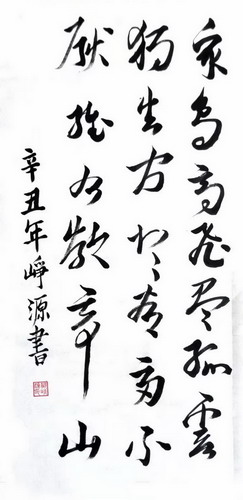 眾鳥高飛盡孤雲
獨去閒相看兩不
厭惟有敬亭山
辛丑年崢源書